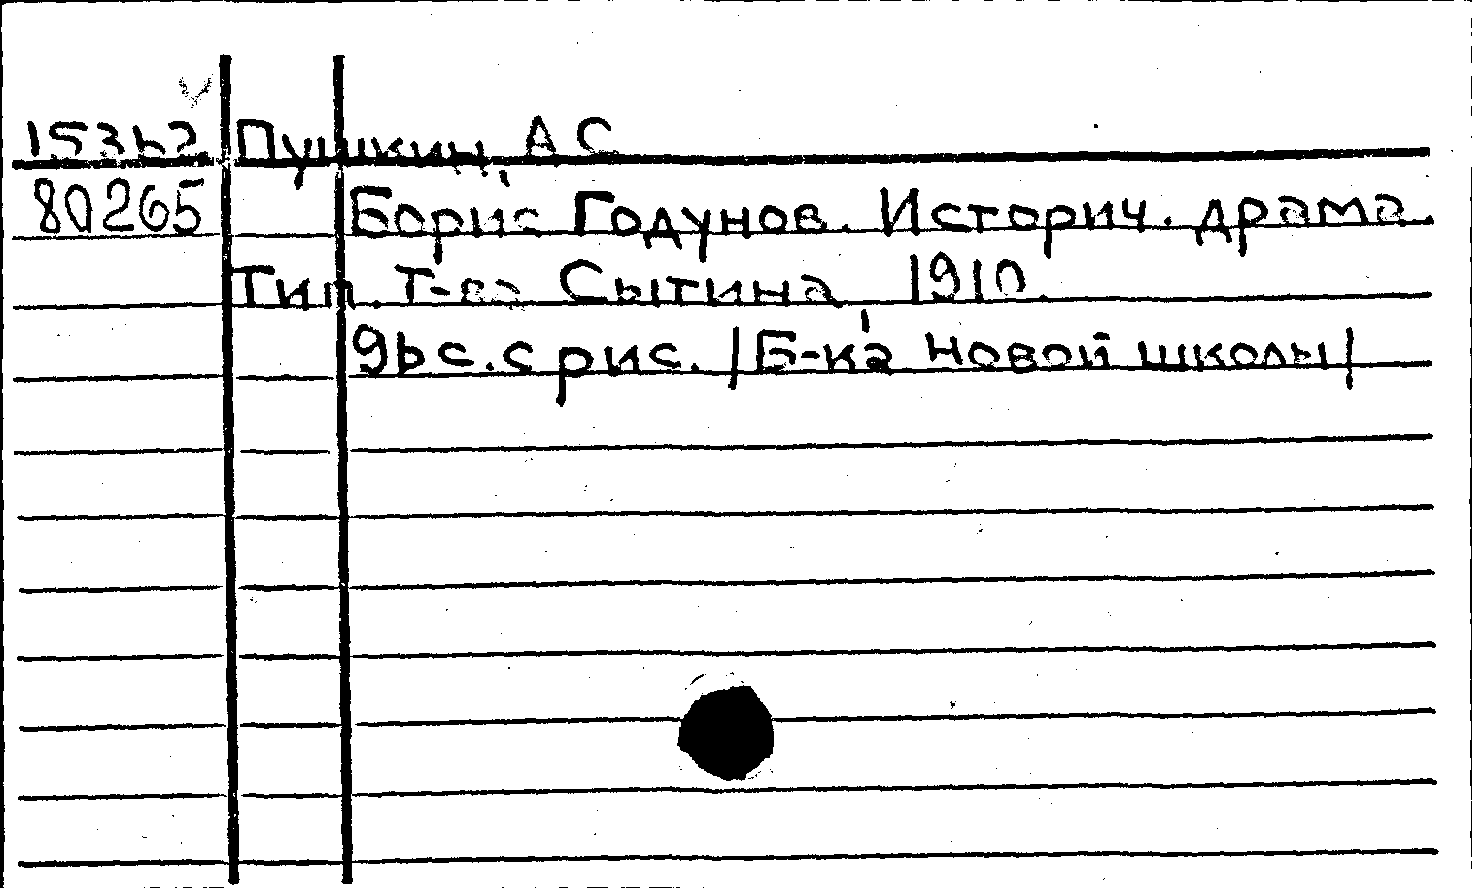 15362 Пушкин, А С
80265 Борис Годунов. Историч. драма.
Тип. Т-ва Сытина 1910.
96 с. с рис. /Б-ка новой школы/